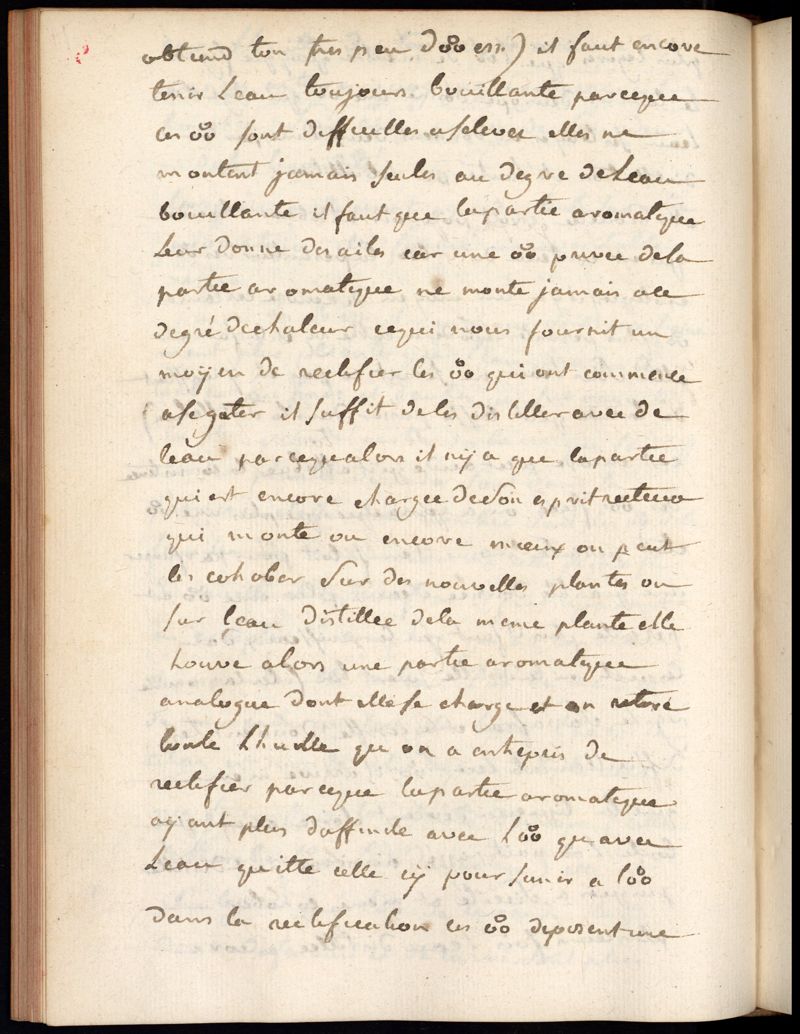 obtient ton tres peu d'o͡o ess.) il faut encore
tenir Leau toujours bouillante parceque
ces o͡o sont difficiles aselever elles ne
montent jamais seules au degre deLeau
bouillante il faut que lapartie aromatique
Leur donne des ailes car une o͡o privee dela
partie aromatique ne monte jamais ace
degré dechaleur cequi nous fournit un
moyen de rectifier les o͡o qui ont commencé
asegater il suffit deles distiller avec de
leau parcequalors il nya que lapartie
qui est encore chargee deson esprit recteur
qui monte ou encore mieux on peut
les cohober sur des nouvelles plantes ou
sur leau distillee dela meme plante elle
trouve alors une partie aromatique
analogue dont elle se charge et on retire
toute Lhuille qu on a entrepris de
rectifier parceque lapartie aromatique
ayant plus daffinité avec Lo͡o quavec
Leau quitte celle cy pour sunir a lo͡o
dans la rectification ces o͡o deposent une